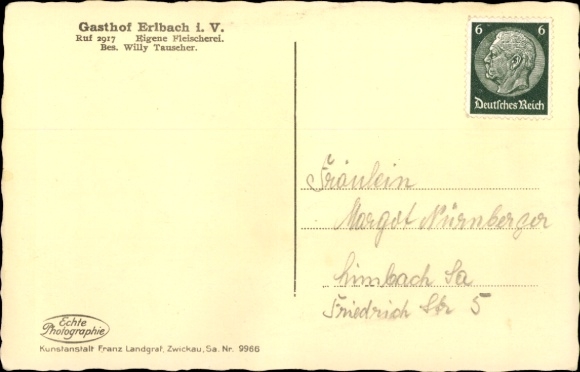 Gasthof Erlbach i. V.
Ruf 2917 Eigene Fleischerei.
Bes. Willy Tauscher.
6 6
Deutsches Reich
Fräulein
Margot Nürnberger
Limbach Sa
Friedrich Str 5
Echte
Photographie
Kunstanstalt Franz Landgraf, Zwickau, Sa. Nr. 9966